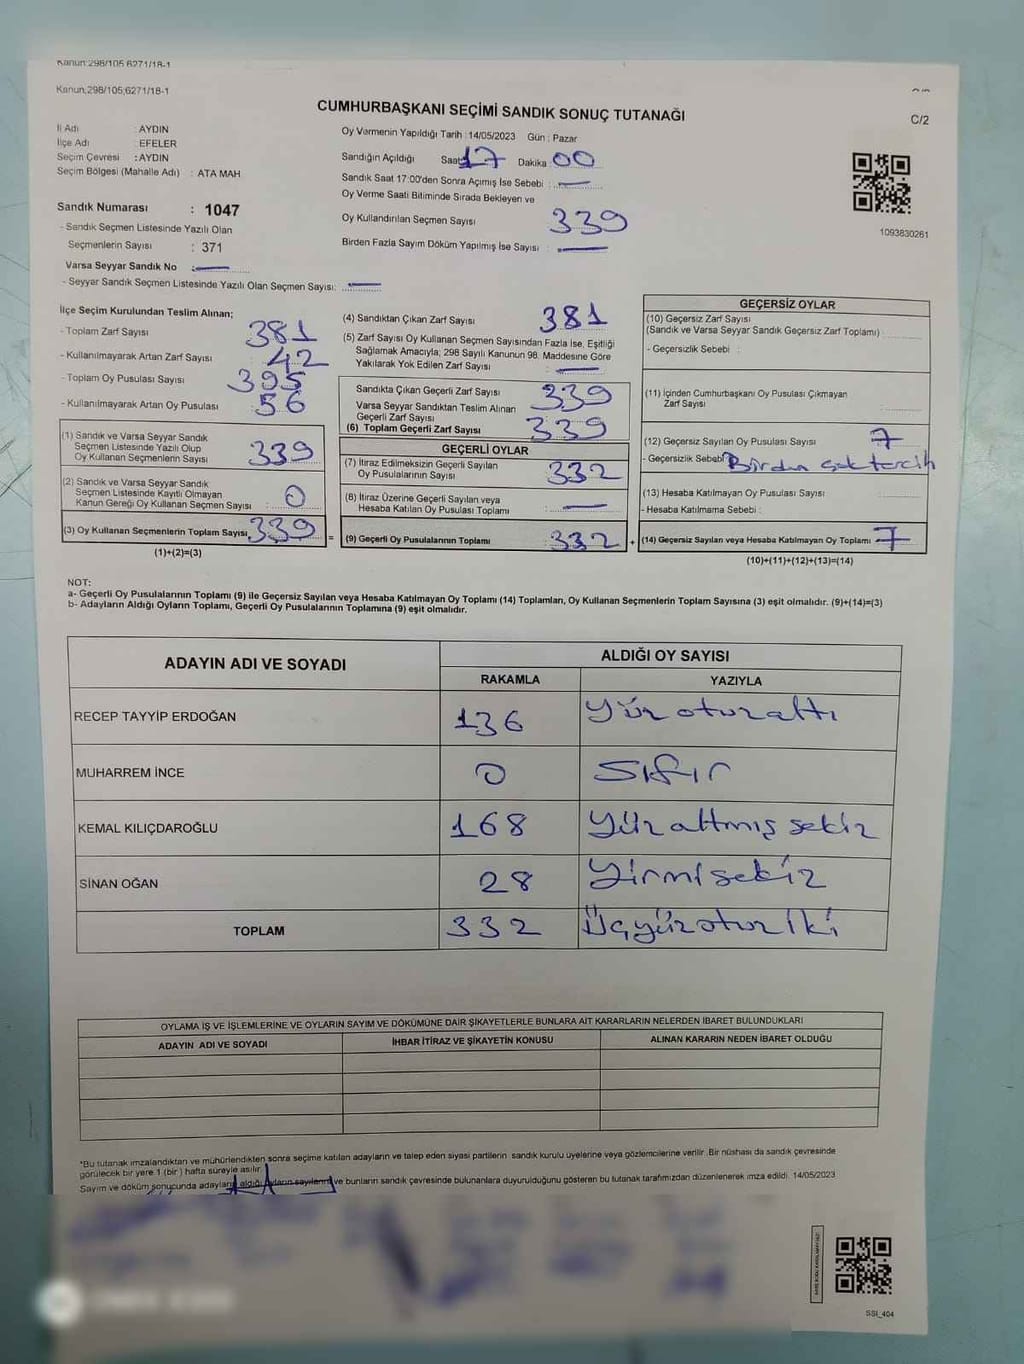 Kanun:298/105 6271/18-1
Kanun;298/105;6271/18-1
CUMHURBAŞKANI SEÇİMİ SANDIK SONUÇ TUTANAĞI
C/2
İl Adı : AYDIN
İlçe Adı : EFELER
Seçim Çevresi : AYDIN
Seçim Bölgesi (Mahalle Adı) : ATA MAH
Sandık Numarası : 1047
- Sandık Seçmen Listesinde Yazılı Olan
Seçmenlerin Sayısı : 371
Varsa Seyyar Sandık No :
- Seyyar Sandık Seçmen Listesinde Yazılı Olan Seçmen Sayısı:
Oy Vermenin Yapıldığı Tarih : 14/05/2023 Gün : Pazar
Sandığın Açıldığı Saat 17 Dakika : 00
Sandık Saat 17:00'den Sonra Açımış İse Sebebi :
Oy Verme Saati Bitiminde Sırada Bekleyen ve
Oy Kullandırılan Seçmen Sayısı 339
Birden Fazla Sayım Döküm Yapılmış İse Sayısı :
1093830261
İlçe Seçim Kurulundan Teslim Alınan;
- Toplam Zarf Sayısı 381
- Kullanılmayarak Artan Zarf Sayısı 42
- Toplam Oy Pusulası Sayısı 395
- Kullanılmayarak Artan Oy Pusulası 56
(1) Sandık ve Varsa Seyyar Sandık
Seçmen Listesinde Yazılı Olup
Oy Kullanan Seçmenlerin Sayısı 339
(2) Sandık ve Varsa Seyyar Sandık
Seçmen Listesinde Kayıtlı Olmayan
Kanun Gereği Oy Kullanan Seçmen Sayısı : 0
(3) Oy Kullanan Seçmenlerin Toplam Sayısı 339
(1)+(2)=(3)
=
(4) Sandıktan Çıkan Zarf Sayısı 381
(5) Zarf Sayısı Oy Kullanan Seçmen Sayısından Fazla İse, Eşitliği
Sağlamak Amacıyla; 298 Sayılı Kanunun 98. Maddesine Göre
Yakılarak Yok Edilen Zarf Sayısı :
Sandıkta Çıkan Geçerli Zarf Sayısı 339
Varsa Seyyar Sandıktan Teslim Alınan
Geçerli Zarf Sayısı
(6) Toplam Geçerli Zarf Sayısı 339
GEÇERLİ OYLAR
(7) İtiraz Edilmeksizin Geçerli Sayılan
Oy Pusulalarının Sayısı 332
(8) İtiraz Üzerine Geçerli Sayılan veya
Hesaba Katılan Oy Pusulası Toplamı
(9) Geçerli Oy Pusulalarının Toplamı 332
+
GEÇERSİZ OYLAR
(10) Geçersiz Zarf Sayısı
(Sandık ve Varsa Seyyar Sandık Geçersiz Zarf Toplamı)
- Geçersizlik Sebebi :
(11) İçinden Cumhurbaşkanı Oy Pusulası Çıkmayan
Zarf Sayısı
(12) Geçersiz Sayılan Oy Pusulası Sayısı 7
- Geçersizlik Sebebi Birden çok tercih
(13) Hesaba Katılmayan Oy Pusulası Sayısı
- Hesaba Katılmama Sebebi :
(14) Geçersiz Sayılan veya Hesaba Katılmayan Oy Toplamı 7
(10)+(11)+(12)+(13)=(14)
NOT:
a- Geçerli Oy Pusulalarının Toplamı (9) ile Geçersiz Sayılan veya Hesaba Katılmayan Oy Toplamı (14) Toplamları, Oy Kullanan Seçmenlerin Toplam Sayısına (3) eşit olmalıdır. (9)+(14)=(3)
b- Adayların Aldığı Oyların Toplamı, Geçerli Oy Pusulalarının Toplamına (9) eşit olmalıdır.
ADAYIN ADI VE SOYADI ALDIĞI OY SAYISI
RAKAMLA YAZIYLA
RECEP TAYYİP ERDOĞAN 136 Yüz otuz altı
MUHARREM İNCE 0 Sıfır
KEMAL KILIÇDAROĞLU 168 Yüz altmış sekiz
SİNAN OĞAN 28 Yirmi sekiz
TOPLAM 332 Üçyüz otuz iki
OYLAMA İŞ VE İŞLEMLERİNE VE OYLARIN SAYIM VE DÖKÜMÜNE DAİR ŞİKAYETLERLE BUNLARA AİT KARARLARIN NELERDEN İBARET BULUNDUKLARI
ADAYIN ADI VE SOYADI İHBAR İTİRAZ VE ŞİKAYETİN KONUSU ALINAN KARARIN NEDEN İBARET OLDUĞU
"Bu tutanak imzalandıktan ve mühürlendikten sonra seçime katılan adayların ve talep eden siyasi partilerin sandık kurulu üyelerine veya gözlemcilerine verilir. Bir nüshası da sandık çevresinde
görülecek bir yere 1 (bir) hafta süreyle asılır.
Sayım ve döküm sonucunda adayların aldığı oyların sayılarını ve bunların sandık çevresinde bulunanlara duyurulduğunu gösteren bu tutanak tarafımızdan düzenlenerek imza edildi. 14/05/2023
SSI_404